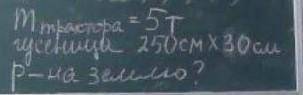 m трактора = 5т
гусеница 250см х 30см
р – на землю?